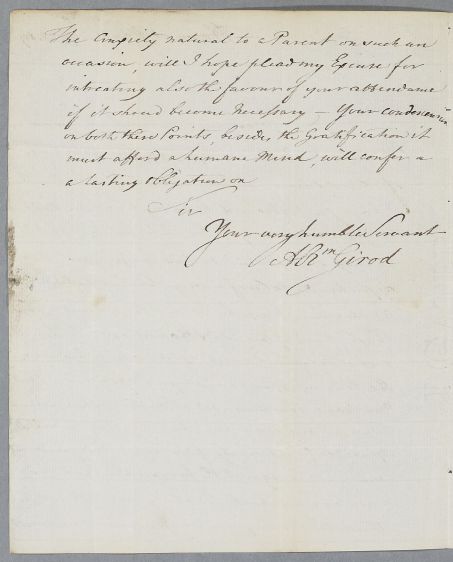 The Anxiety natural to a Parent on such an
occasion, will I hope plead my Excuse for
intreating also the favour of your attendance
if it should become necessary – Your condescension
on both these Points, besides the Gratification it
must afford a humane Mind, will confer a
a lasting obligation on
Sir
Your very humble Servant
Girod